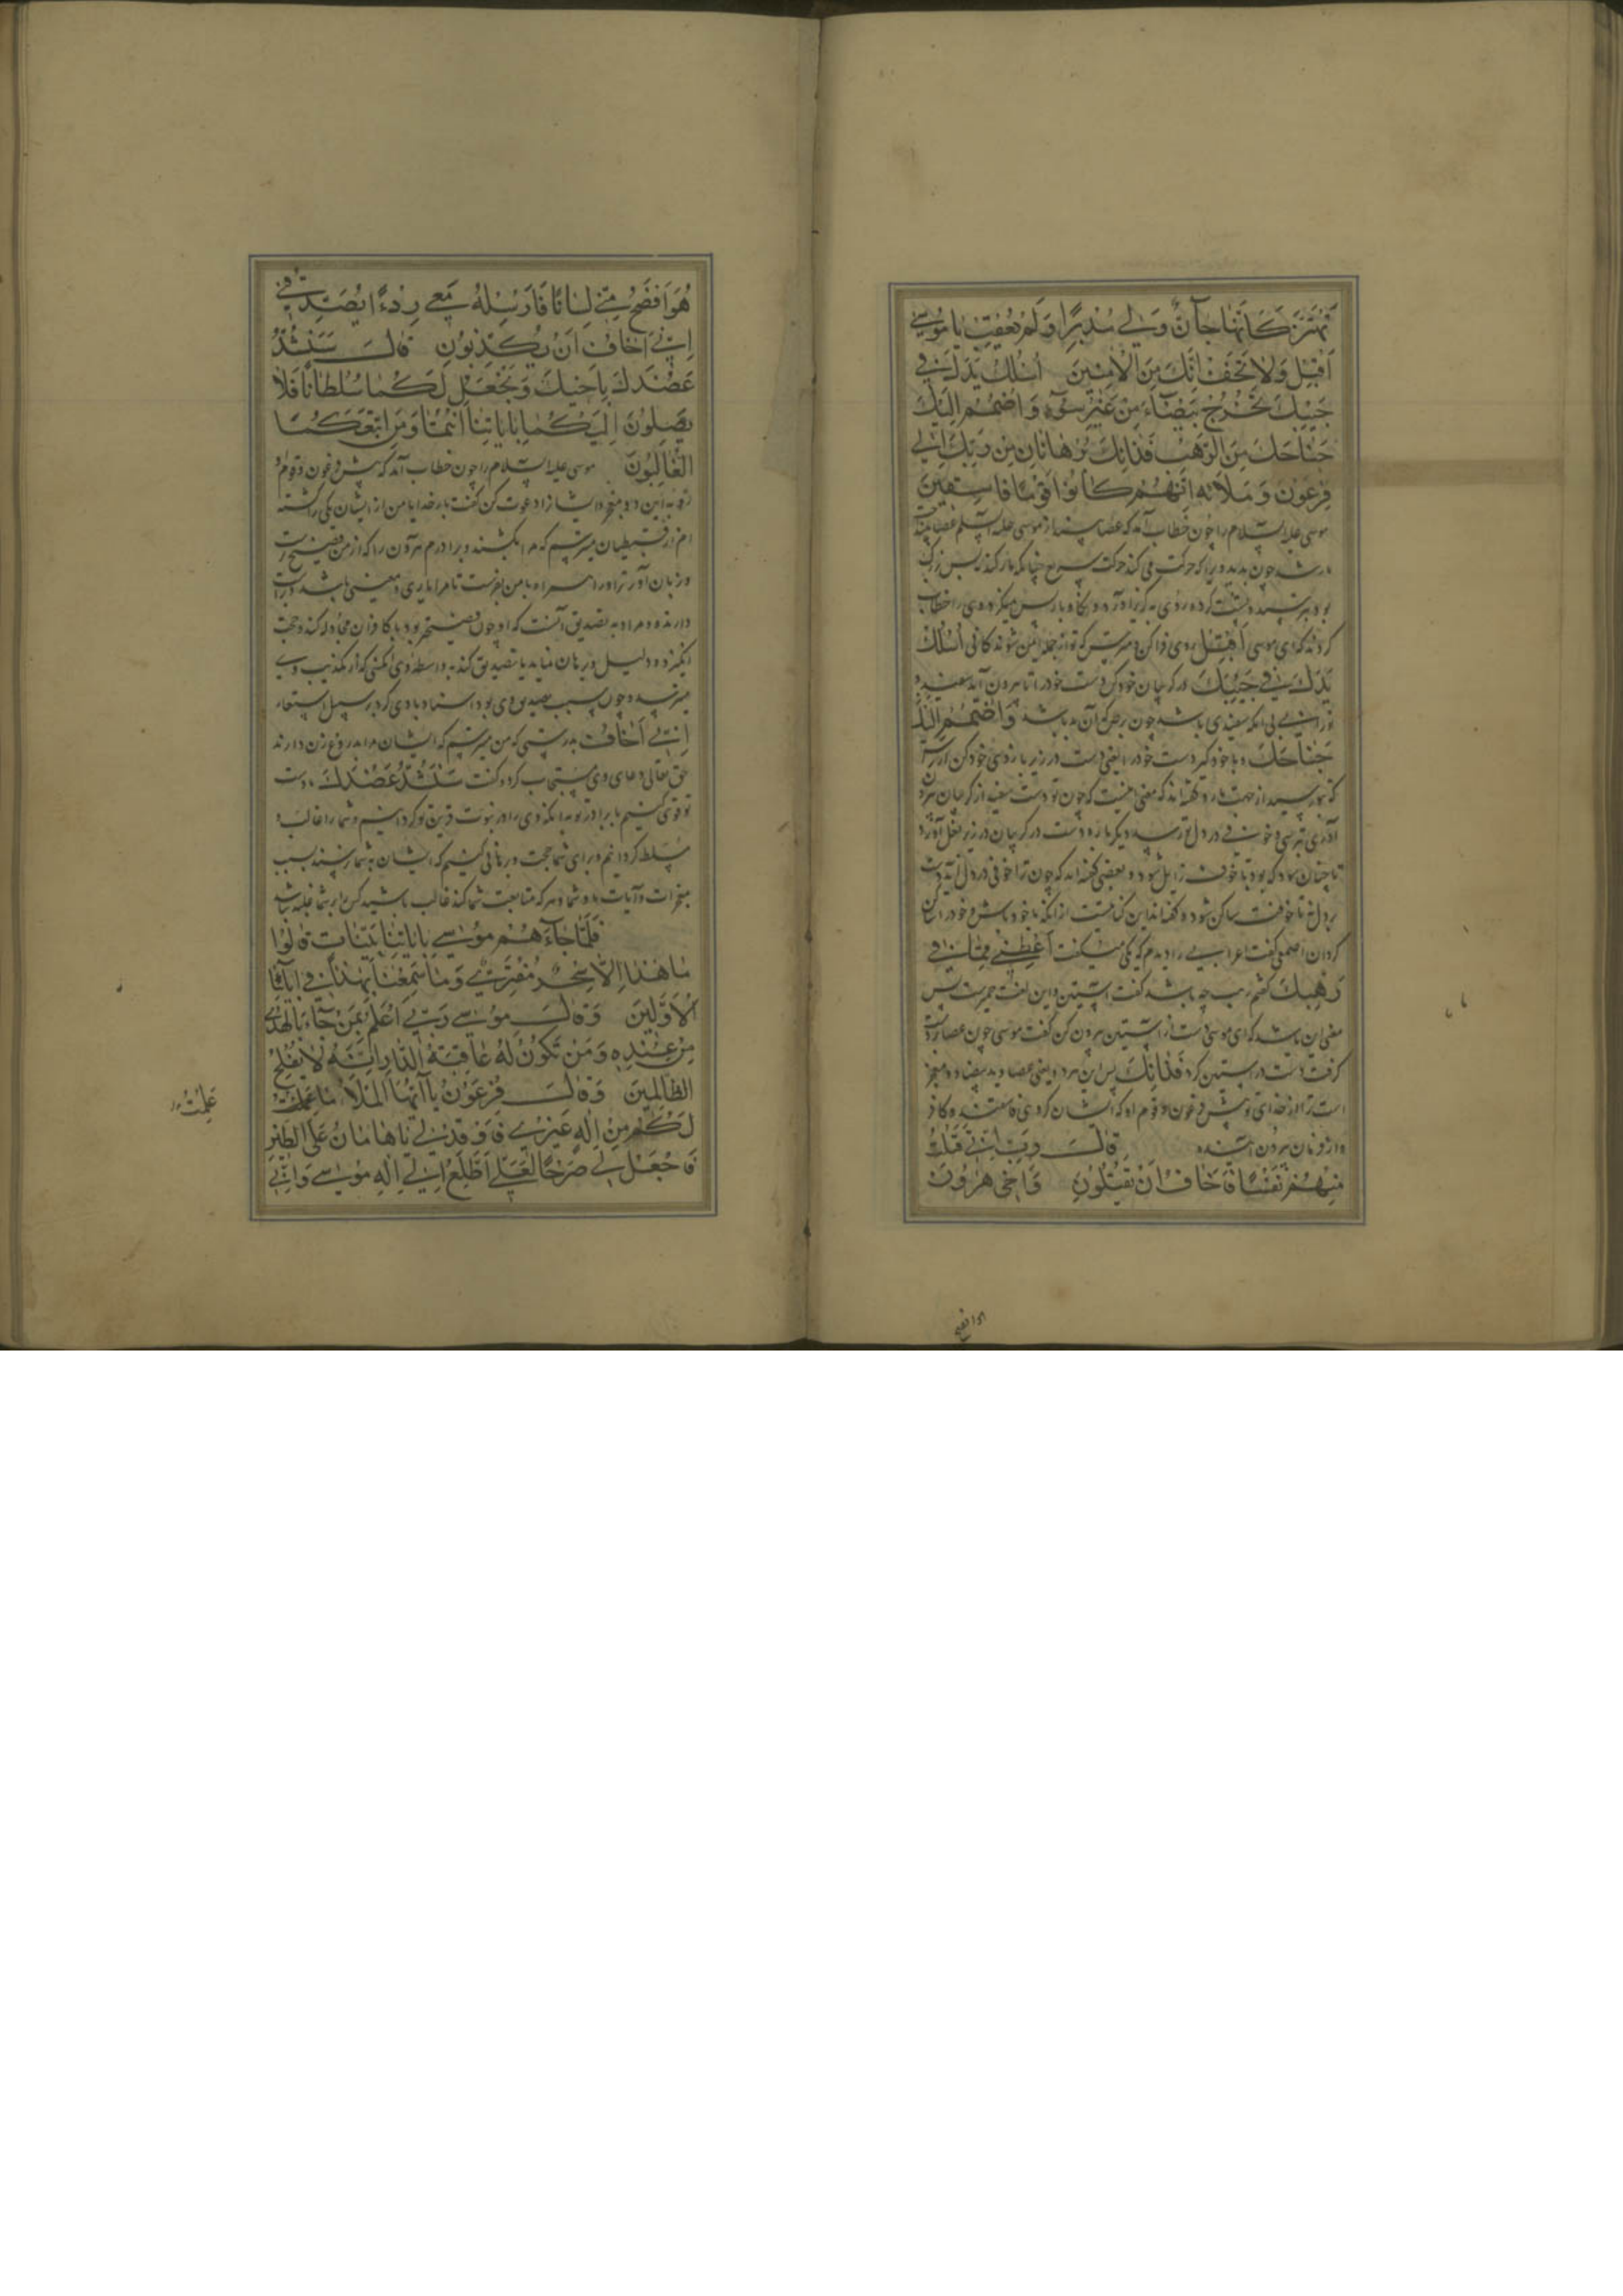 تهتز كانها جان ولى مدبرا ولم يعقب يا موسى
اقبل ولا تخف انك من الامنين اسلك يدك فى
جيبك تخرج بيضاء من غير سوء واضمم اليك
جناحك من الرهب فذانك برهانان من ربك الى
فرعون وملائه انهم كانوا قوما فاسقين
موسى عليه السلام را چون خطاب آمد كه عصا بينداز موسى عليه السلم عصا بينداخت
مار شد چون بديد ويرا كه حركت مى كند حركت سريع چنانكه مار كند
كردند كه اى موسى اقبل روى فرا كن و مترس كه تو از جمله ايمن شوندكانى اسلك
يدك فى جيبك در كريبان خود كن دست خود را تا بيرون آيد سفيد و
نورانى بى آنكه سفيدى باشد چون برص كه آن بد باشد واضمم اليك
جناحك و با خود كير دست خود را يعنى دست در زير بازوى خود كن
آرى بترسى و خوفى در دل تو رسد ديكر باره دست در كريبان در زير بغل آور
تا چنان شود كه بود تا خوف زايل شود و بعضى كفته اند كه چون ترا خوفى در دل آيد دست
بر دل نه تا خوفت ساكن شود
كردان اصمعى كفت اعرابيى را ديدم كه يكى را ميكفت اعطنى ما فى
رهبك كفتم رهب چه باشد كفت آستين و اين لغت حمير است پس
معنى اين باشد كه اى موسى دست از آستين بيرون كن كفت موسى چون عصا
كرفت دست در آستين كرد فذانك پس اين هر دو يعنى عصا و يد بيضا دو معجز
است ترا از خداى تو پيش فرعون و قوم او كه ايشان كروهى فاسقند و كافر
و از فرمان بيرون آمنده قال رب انى قتلت
منهم نفسا فاخاف ان يقتلون واخى هرون
هو افصح منى لسانا فارسله معى ردءا يصدقنى
انى اخاف ان يكذبون قال سنشد
عضدك باخيك ونجعل لكما سلطانا فلا
يصلون اليكما باياتنا انتما ومن اتبعكما
الغالبون موسى عليه السلام را چون خطاب آمد كه پيش فرعون و قوم او
رو به اين دو معجز و ايشانرا دعوت كن كفت بار خدايا من از ايشان يكى را كشته
ام از قبطيان ميترسم كه مرا بكشند و برادرم هرون را كه از من فصيح تر است
و زبان آور تر او را همراه با من بفرست تا مرا يارى و معينى باشد
دارنده و مراد به تصديق آنست كه او چون فصيحتر بود با كافران مجادله كند و حجت
انكيزد و دليل و برهان نمايد يا تصديق كند به واسطه وى
انى اخاف بدرستى كه من ميترسم كه ايشان مرا بدروغ زن دارند
حق تعالى دعاى وى مستجاب كرد و كفت سنشد عضدك دست
تو قوى كنيم ما برادر تو بدانكه وى را در نبوت قرين تو كردانيم و شما را غالب و
مسلط كردانيم و براى شما حجت و برهانى كنيم كه ايشان به شما نرسند بسبب
معجزات و آيات ما و شما و هر كه متابعت شما كند غالب باشيد كس را بر شما غلبه نباشد
فلما جاءهم موسى باياتنا بينات قالوا
ما هذا الا سحر مفترى وما سمعنا بهذا فى ابائنا
الاولين وقال موسى ربى اعلم بمن جاء بالهدى
من عنده ومن تكون له عاقبة الدار انه لا يفلح
الظالمين وقال فرعون يا ايها الملا ما علمت
لكم من اله غيرى فاوقد لى يا هامان على الطين
فاجعل لى صرحا لعلى اطلع الى اله موسى وانى
علمت
هو افصح